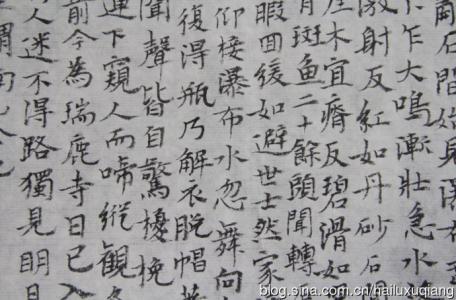 石間始見瀑布
乍大鳴漸壯急水
激射反紅如丹砂石
產木宜瘠反碧滑如
有斑魚二十餘頭聞轉
暇囬緩如避世士然家
仰接瀑布水忽舞向
復得瓶乃解衣脫帽著
聞聲皆自驚擾挽
連下窺人而啼縱觀
前今為瑞鹿寺日已入
人迷不得路獨見明月
blog.sina.com.cn/hailuxuqiang